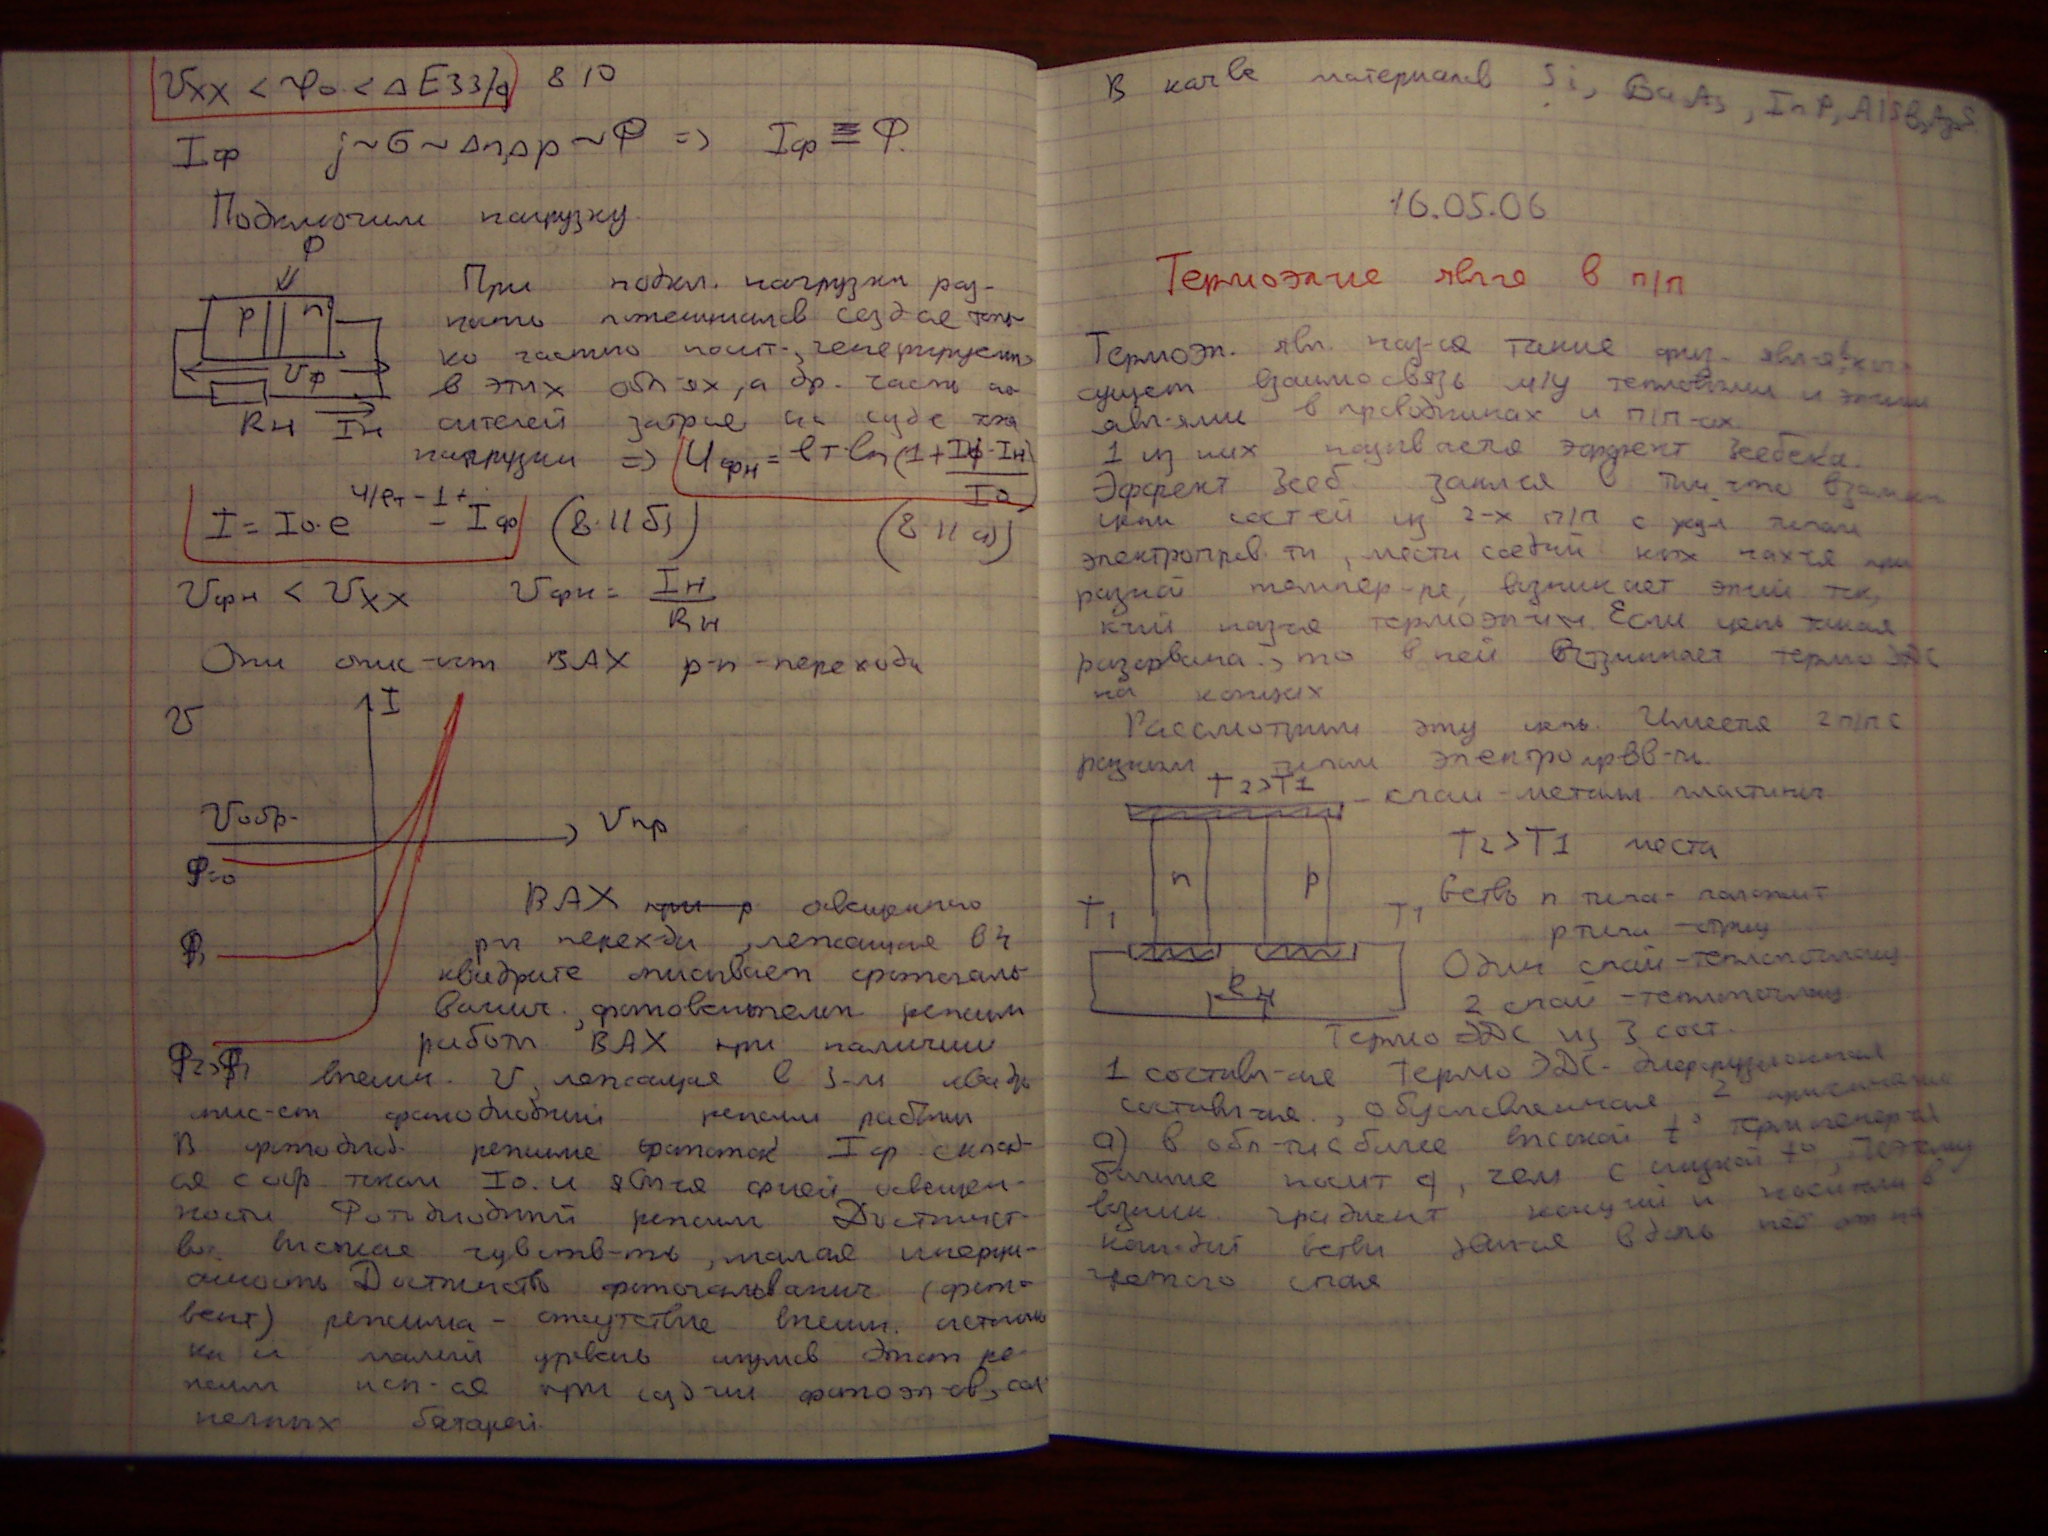 Uxx < φ0 < ΔEзз/q 8 10
Iф j ~ σ ~ Δn,Δp ~ Φ => Iф ≡ Φ.
Подключим нагрузку
Φ
p n
Uф
Rн Iн
При подкл. нагрузки раз-
ность потенциалов создае толь-
ко частью носит-, генерируемых
в этих обл-ях, а др. часть но-
сителей
нагрузки => Uфн = φт·ln(1+ Iф-Iн / I0)
I = I0·e^U/φт -1 - Iф (8.11б) (8.11а)
Uфн < Uxx Uфн = Iн / Rн
Они опис-ют ВАХ p-n-перехода
U I
Uобр. Uпр
Φ=0
Φ1
Φ2>Φ1
ВАХ при р освещенного
pn перехда, лежащая в 4
квадрате описывает фотогаль-
ванич., фотовентильн режим
работы ВАХ при наличии
внешн. U, лежащая в 3-м квадр
опис-ет фотодиодный режим работы
В фотодиод. режиме фототок Iф склад-
ся с обр током I0. и явл-ся фцией освещен-
ности Фотодиодный режим Достоинст-
во. высокая чувств-ть, малая инерци-
онность Достоинство фотогальванич (фото-
вент) режима - отсутствие внешн. источни
ка и малый уровень шумов Этот ре-
жим исп-ся при создчии фотоэл-ов, сол
нечных батарей.
В кач-ве материалов Si, GaAs, InP, AlSb,
16.05.06
Термоэл-ие явл-я в п/п
Термоэл. явл. наз-ся такие физ. явл-я, в к-ых
сущест взаимосвязь м/у тепловыми и эл-ими
явл-ями в проводниках и п/п-ах
1 из них называется эффект Зеебека.
Эффект Зееб. закл-ся в том, что в замкн
цепи состей из 2-х п/п с типом
электропров-ти, места соедий к-ых нахся при
разной темпер-ре, возникает эл-ий ток,
к-ый назся термоэл-им. Если цепь такая
разорвана, то в ней возникает термоЭДС
на концах
Рассмотрим эту цепь. Имеется 2 п/п с
разным типом электропров-ти.
T2>T1 - спаи - металл пластины
n p
T1 T1
Rн
T2>T1 места
ветвь n типа - положит
p типа - отриц
Один спай - теплопоглощ
2 спай -
Термо ЭДС из 3 сост.
1 составл-ая Термо ЭДС - диффузионная
составл-ая, обусловленная 2 причинами
а) в обл-ти с более высокой t°
больше носит q, чем с низкой t°, Поэтому
возник. градиент конц-ий и носители в
каждой ветви вдоль неё от на
гретого спая